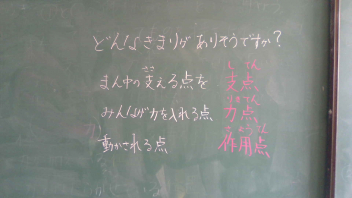 どんなきまりがありそうですか?
まん中の支える点を 支点
みんなが力を入れる点 力点
動かされる点 作用点